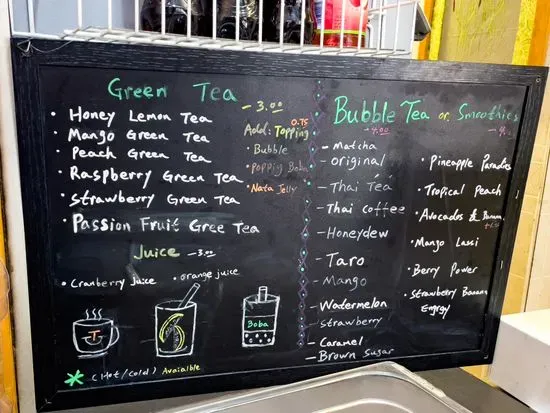 Green Tea
- 3.00
• Honey Lemon Tea
• Mango Green Tea
• Peach Green Tea
• Raspberry Green Tea
• Strawberry Green Tea
• Passion Fruit Gree Tea
0.75
Add: Topping
• Bubble
• Popping Boba
• Nata Jelly
Juice - 3.00
• Cranberry Juice
• orange juice
T
Boba
* (Hot/Cold) Avaialble
Bubble Tea or Smoothies
- 4.00
- Matcha
- original
- Thai Tea
- Thai Coffee
- Honeydew
- Taro
- Mango
- Watermelon
- Strawberry
- Caramel
- Brown Sugar
• Pineapple Paradies
• Tropical Peach
• Avocados & Banana
• Mango Lassi
• Berry Power
• Strawberry Banana
Energy